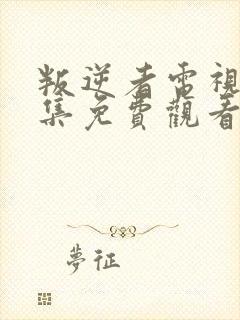 叛逆者電視
集免費觀看
夢征